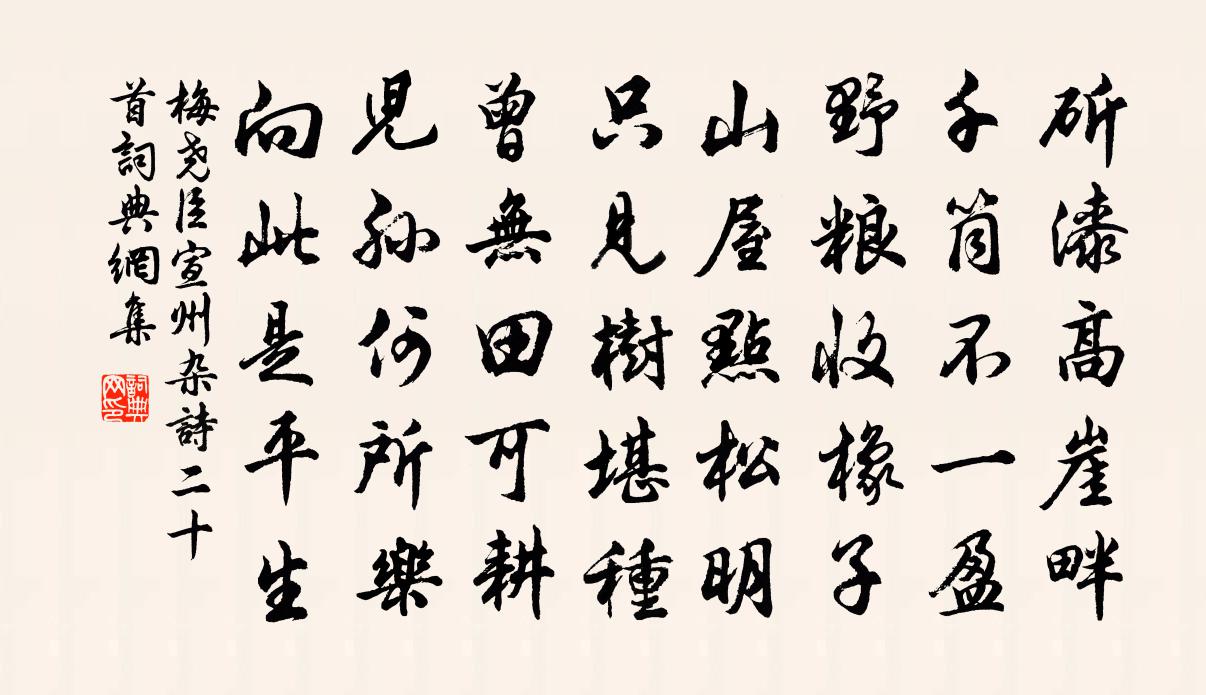 斫漆高崖畔
千筒不一盈
野粮收橡子
山屋點松明
只見樹堪種
曾無田可耕
兒孫何所樂
向此是平生
梅尧臣宣州杂詩二十
首詞典網集
詞典网印